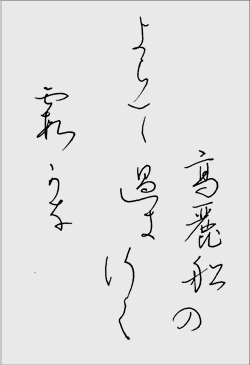 高麗船の
よらで過き行く
霞かな